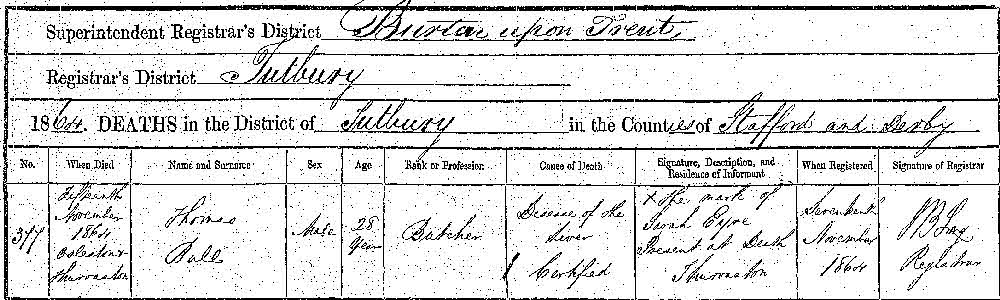 Superintendent Registrar's District Burton upon Trent
Registrar's District Tutbury
1864. DEATHS in the District of Tutbury in the Counties of Stafford and Derby
No. When Died Name and Surname Sex Age Rank or Profession Cause of Death Signature, Description, and Residence of Informant When Registered Signature of Registrar
377 Fifteenth November 1864 Thurvaston
Thomas Ball
Male
28 years
Butcher
Disease of the Liver Certified
X The mark of Sarah Eyre Present at Death Thurvaston
Seventeenth November 1864
Registrar